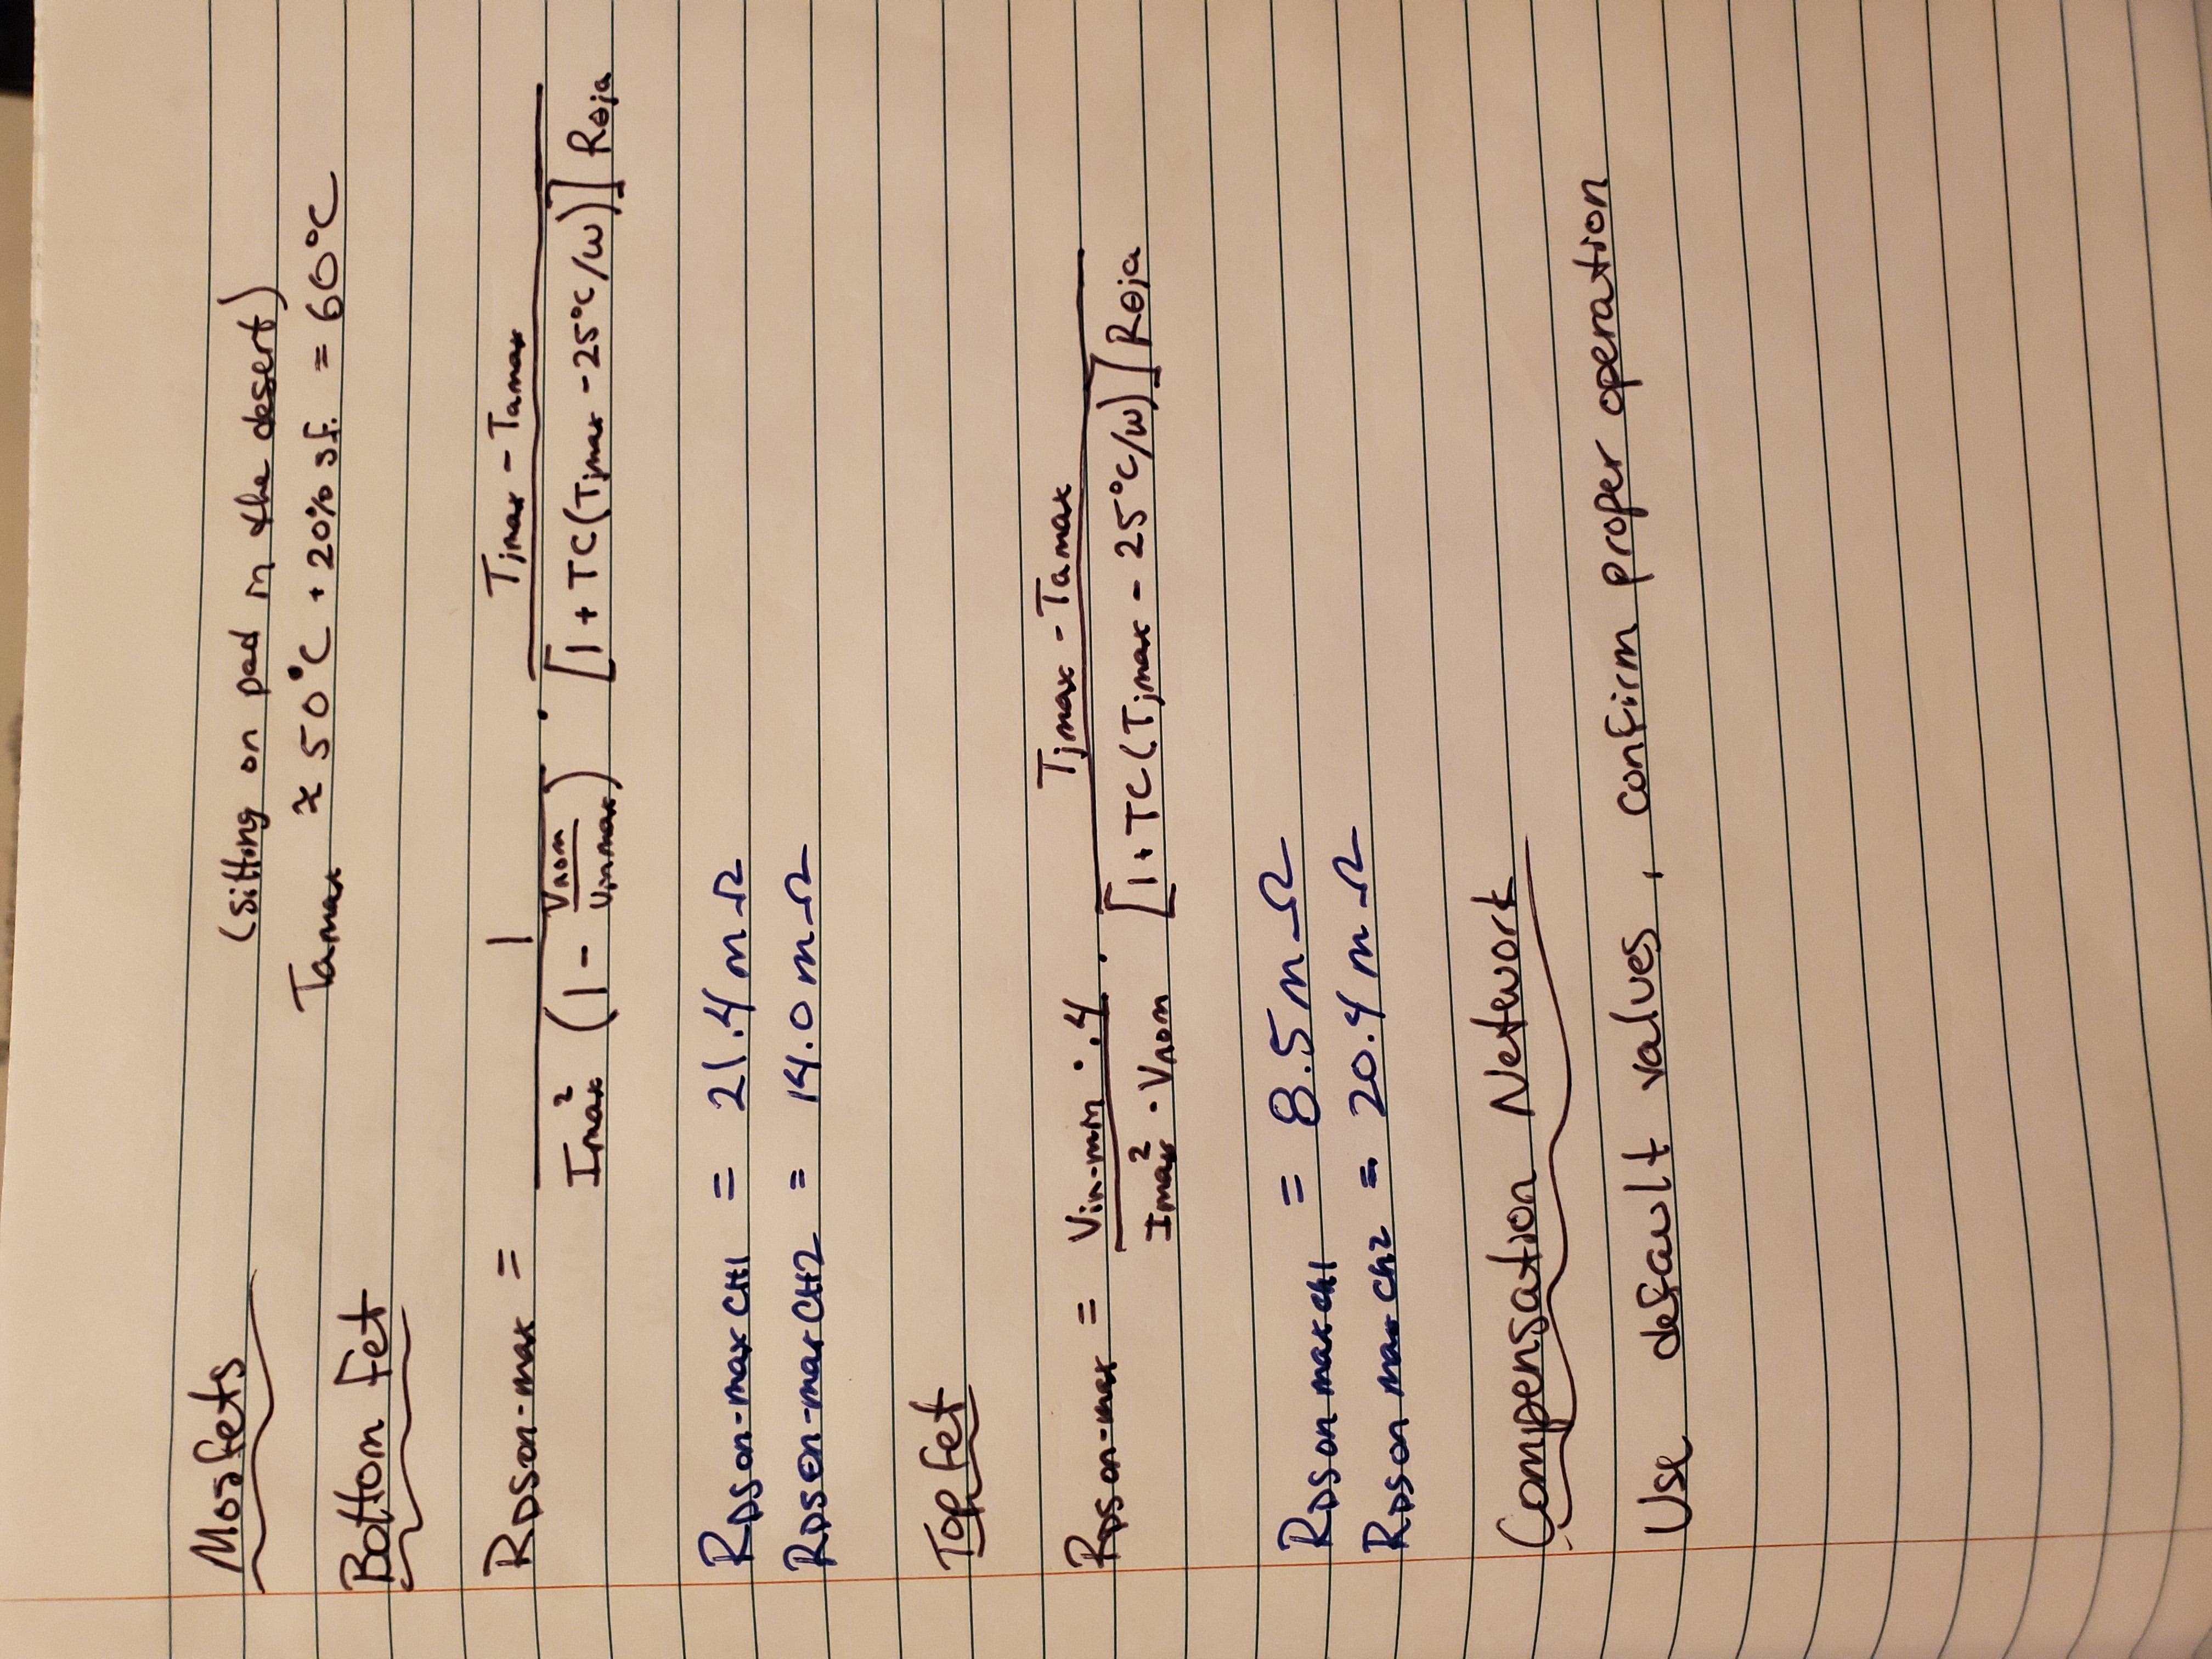 Mosfets
(sitting on pad in the desert)
Tamax ≈ 50°C + 20% s.f. = 60°C
Bottom Fet
RDSon-max = 1 / (Imax² (1 - Vnom/Vinmax)) · (Tjmax - Tamax) / ([1 + TC(Tjmax - 25°C/W)] Rθja)
RDSon-max CH1 = 21.4 mΩ
RDSon-max CH2 = 14.0 mΩ
Top Fet
RDSon-max = (Vin-min · .4) / (Imax² · Vnom) · (Tjmax - Tamax) / ([1 + TC(Tjmax - 25°C/W)] Rθja)
RDSon max ch1 = 8.5 mΩ
RDSon max ch2 = 20.4 mΩ
Compensation Network
Use default values, confirm proper operation